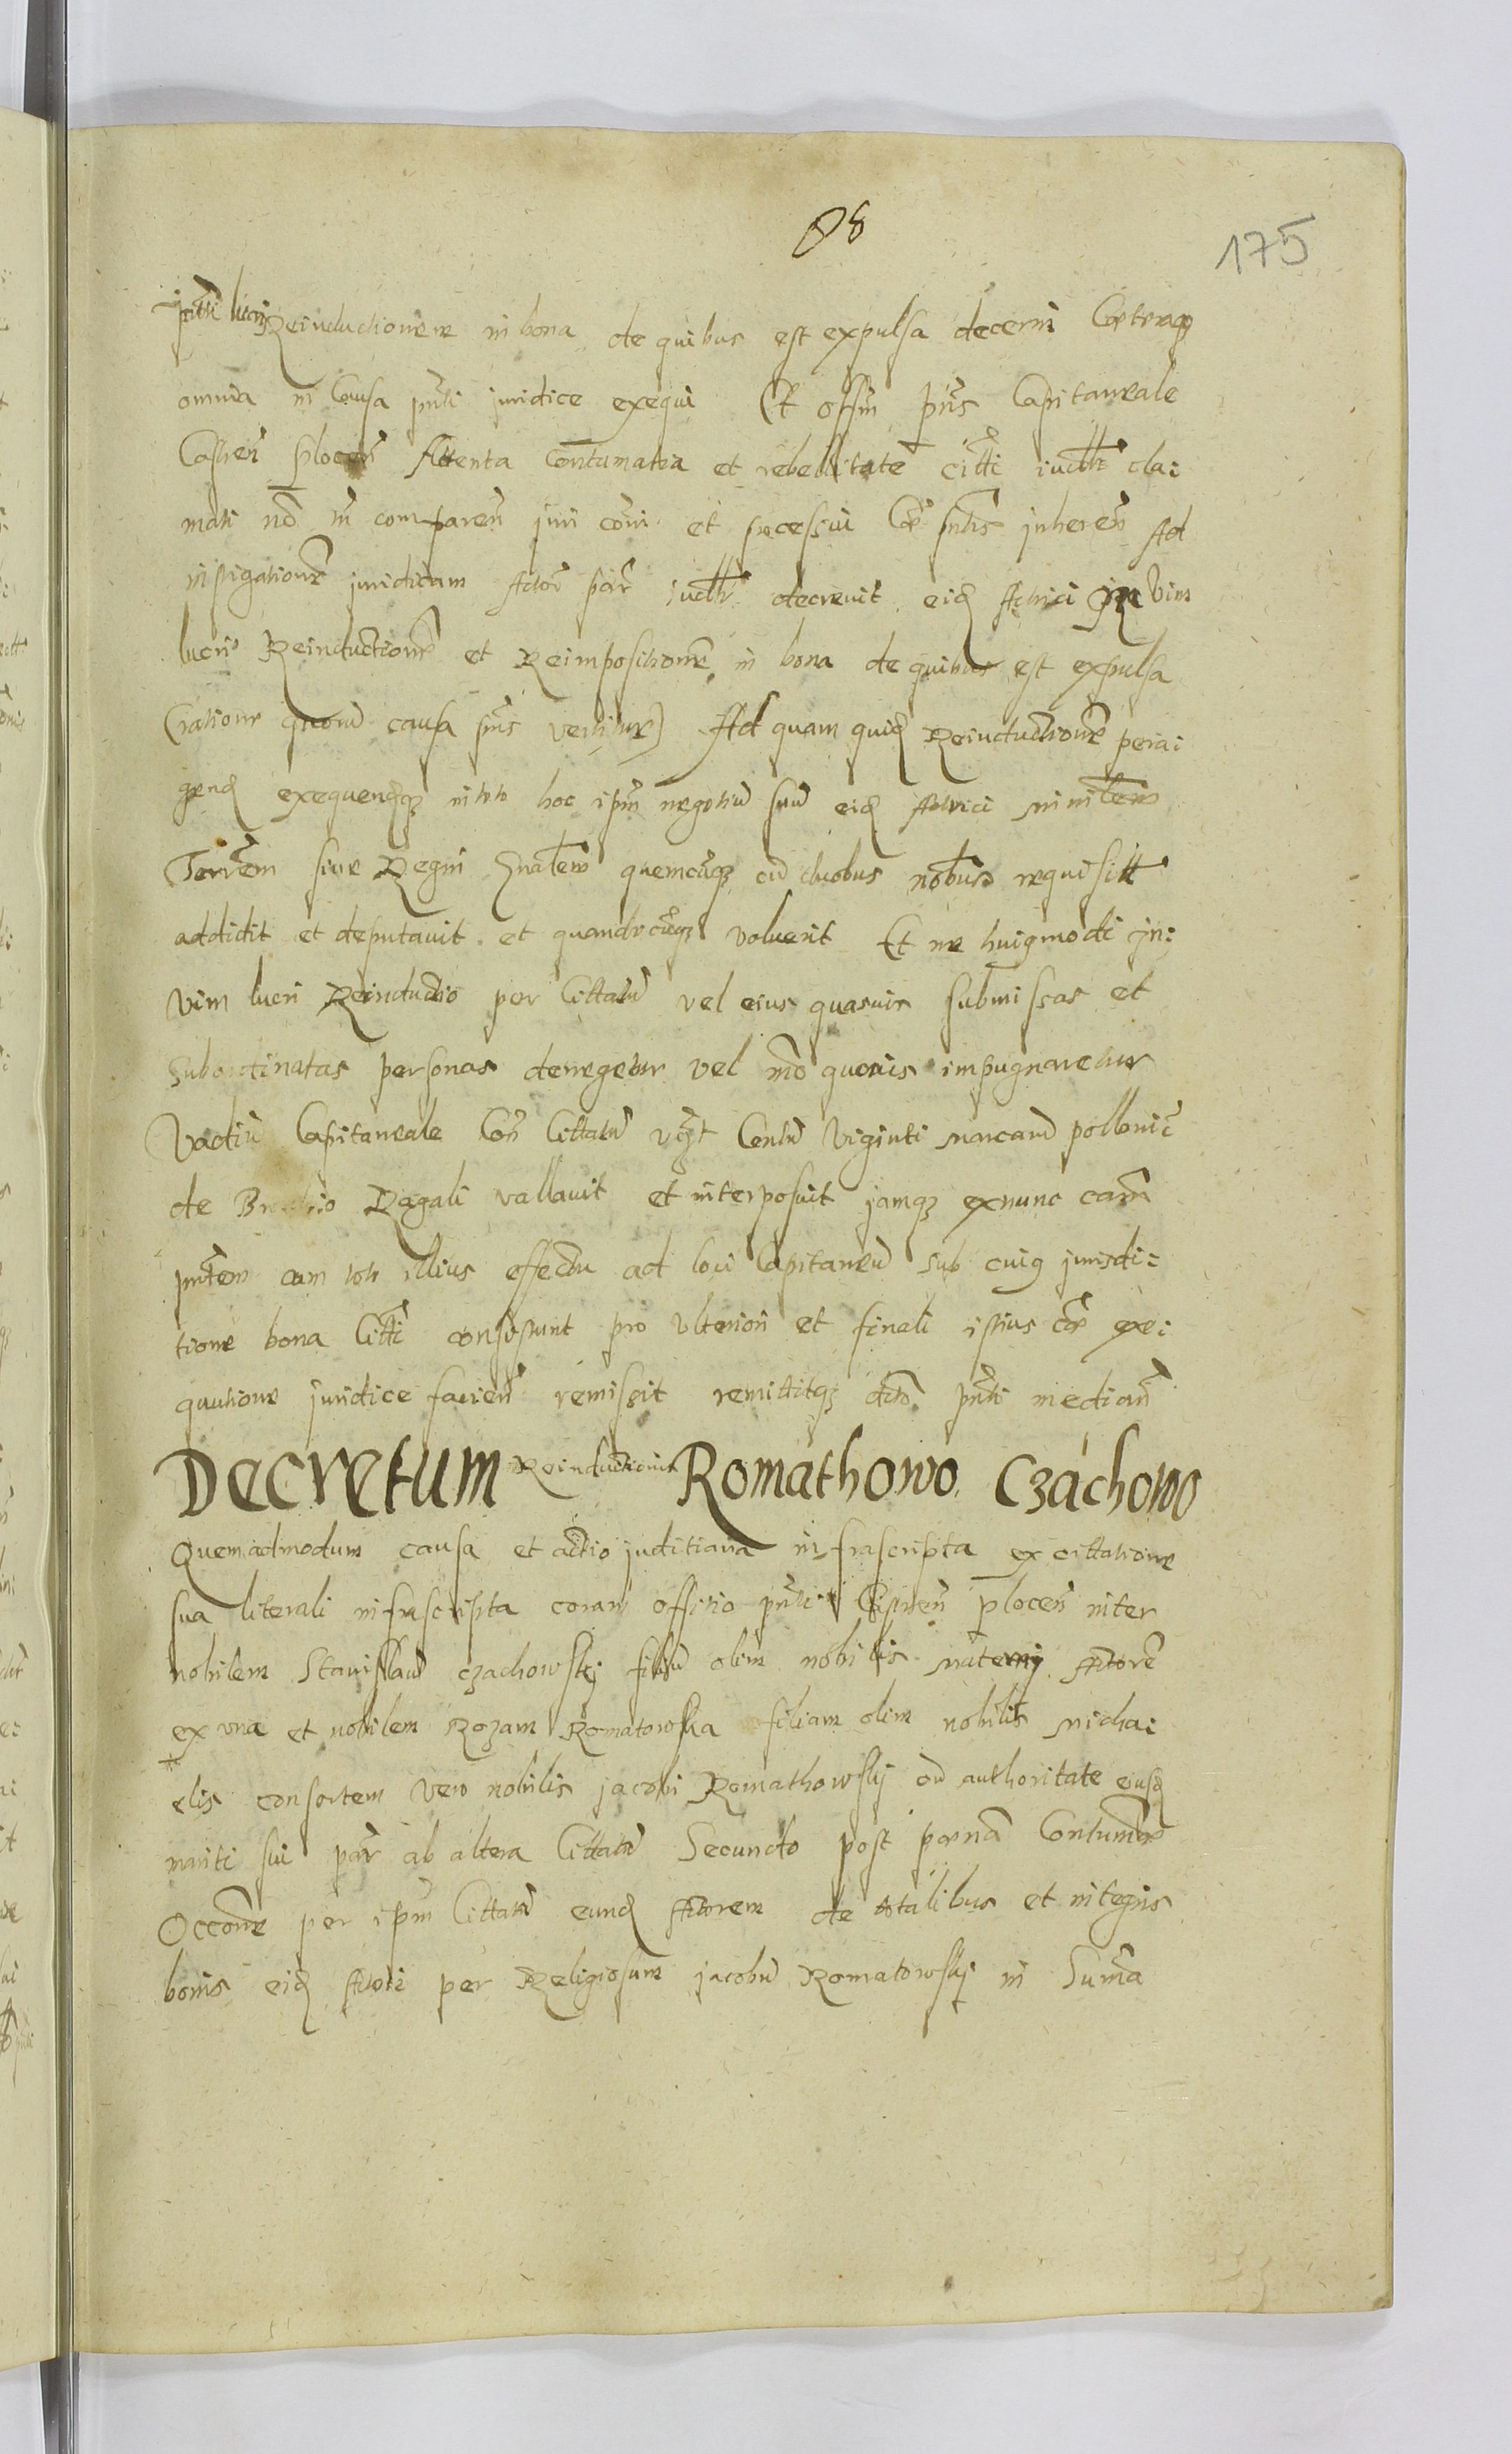 98
175
Reinductionem in bona de quibus est expulsa decerni Coeteraq
omnia in Causa pnti juridice exequi Et offm pns Capitaneale
Castren plocen Attenta Contumatia et rebellitate citti iudltr cla:
mati no tn comparen juri coni et processui Coe pntis inheren Ad
instigationem juridicam Actor par iudltr decrevit eid Actrici in vim
lucri Reinductione et Reimpositione in bona de quibus est expulsa
(ratione quoru causa pns vertitur) Ad quam quid Reinductione pera:
gend exequendq in toto hoc ipm negotiu suu eid Actrici ministlem
Terrem sive Regni gnalem quemcuq cu duobus nobbus requisitt
addidit et deputavit et quandocuq voluerit Et ne huigmodi in:
vim lucri Reinductio per Cittatu vel eius quasvis submissas et
subordinatas personas denegetur vel mo quovis impugnaretur
Vadiu Capitaneale Con Cittatu vigt Centu Viginti marcaru pollonic
de Brachio Ragali vallavit et interposuit jamq exnunc cam
pntem cum toto illius effectu ad loci Capitaneu sub cuig jurisdi:
tione bona Citti consistunt pro ulteriori et finali istius coe exe:
qutione juridice facien remissit remittitq dto pnti median
Decretum Reinductionis Romathowo Czachowo
Quemadmodum causa et actio juditiaria infrascripta ex cittatione
sua literali infrascripta coram offitio pnti Castren plocen inter
nobilem Stanislau Czachowskj filiu olim nobilis materny Actore
ex una et nobilem Rozam Romatowska filiam olim nobilis micha:
elis consortem vero nobilis jacobi Romathowskj cu authoritate eiusd
mariti sui par ab altera Cittatu Secundo post poena Contumae
Occone per ipm Cittatu eund Actorem de totalibus et integris
bonis eid Actori per Religiosum jacobu Romatowskj in Suma